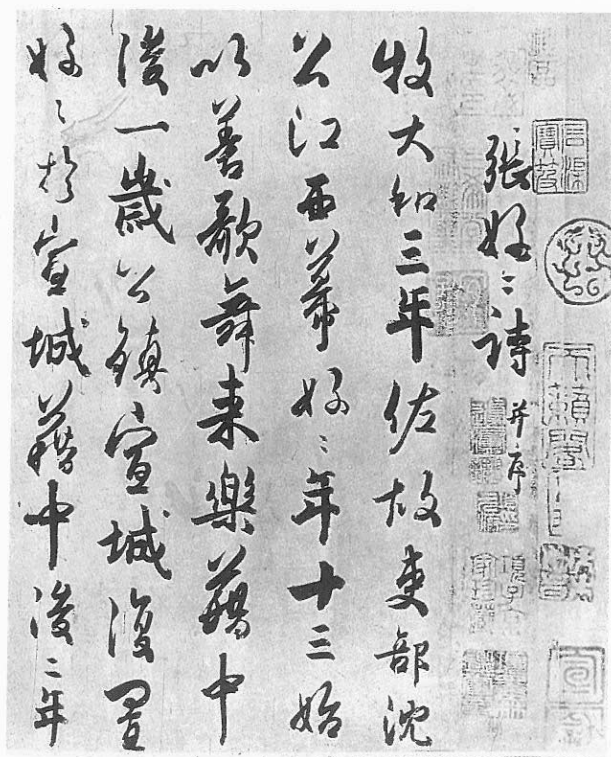 張好〻詩 并序
牧大和三年佐故吏部沈
公江西幕好〻年十三始
以善歌舞来樂藉中
後一歲公鎮宣城復置
好〻於宣城藉中後二年